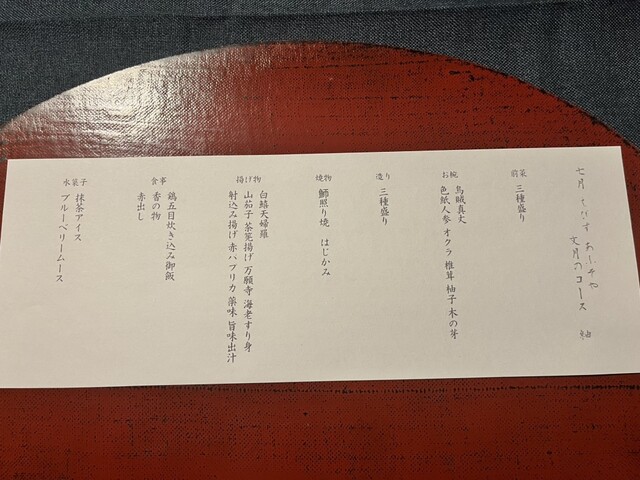 七月
文月のコース
前菜
三種盛り
お椀
烏賊真丈
色紙人参 オクラ 椎茸 柚子 木の芽
造り
三種盛り
焼物
鰤照り焼 はじかみ
揚げ物
白鱚天婦羅
山茄子 茶筅揚げ 万願寺 海老すり身
射込み揚げ 赤パプリカ 薬味 旨味出汁
食事
鶏五目炊き込み御飯
香の物
赤出し
水菓子
抹茶アイス
ブルーベリームース